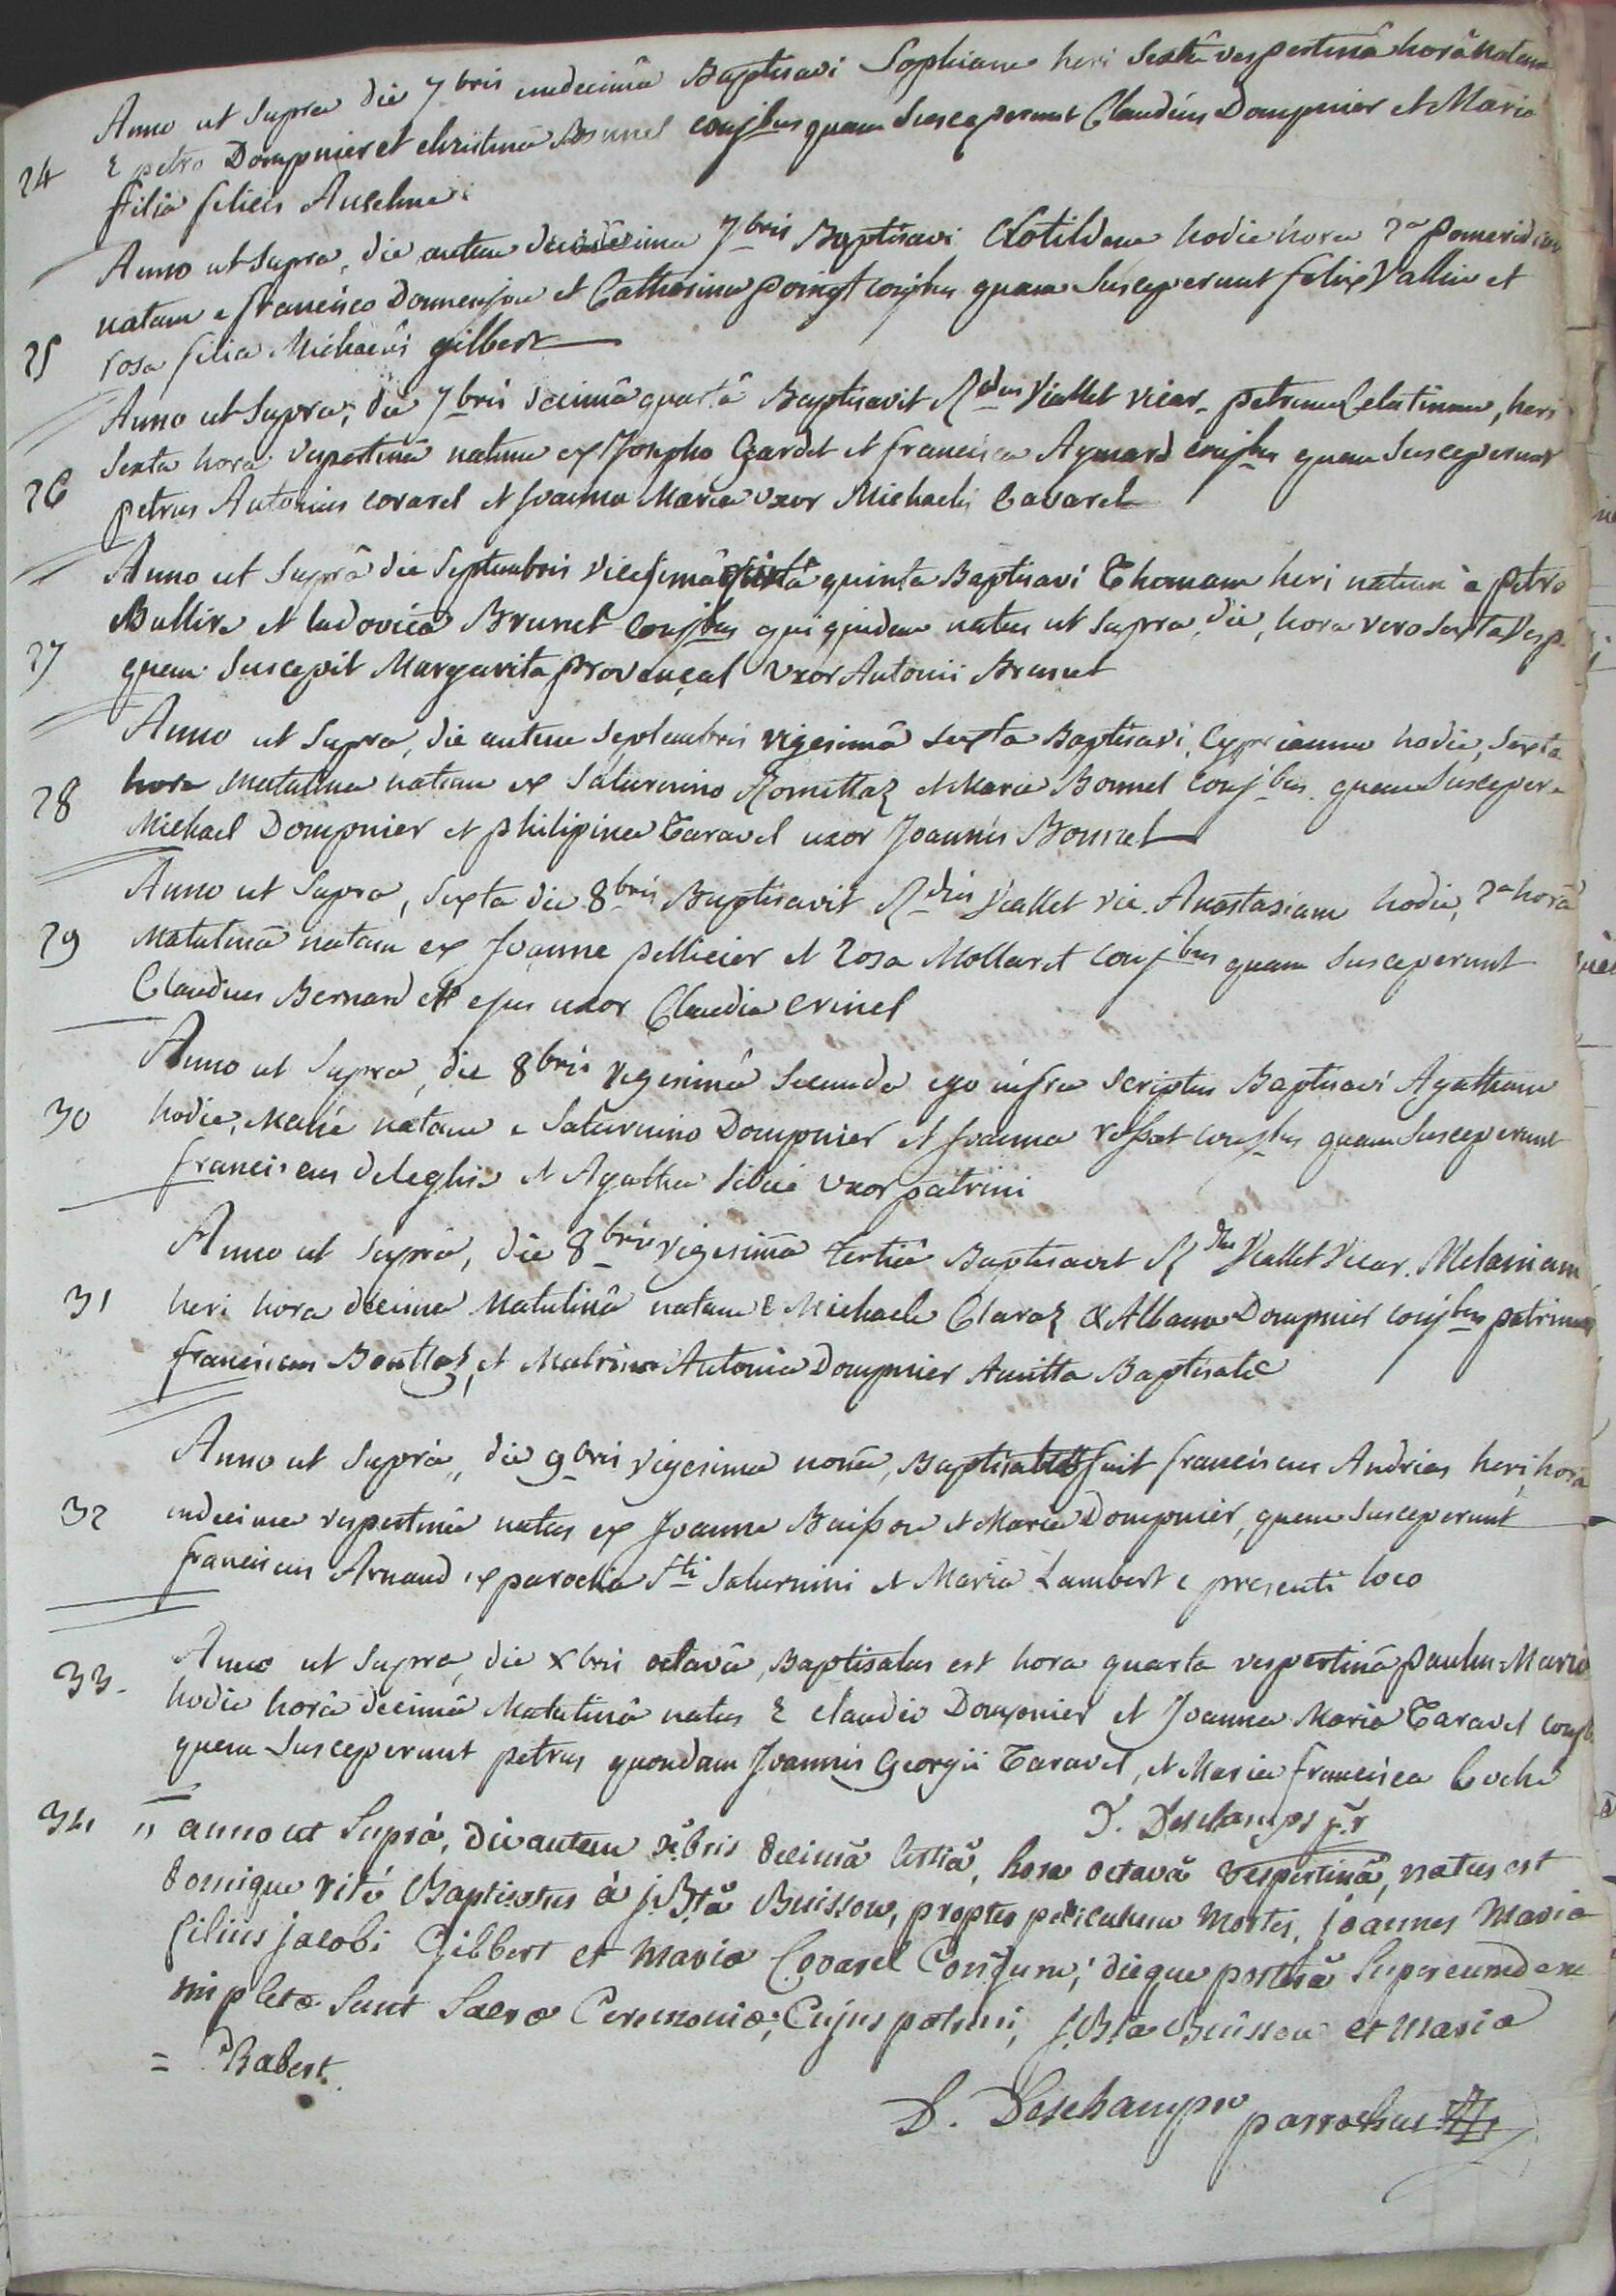 Anno ut Supra die 7bris undecimâ Baptisavi Sophiam heri Sextâ vespertinâ horâ natam
24 è petro Dompnier et christina Bonnel conjbus quam Susceperunt Claudius Dompnier et Maria
filia felicis Anselme
Anno ut Supra, die autem duodecima 7bris Baptisavi Clotildem hodie hora 2a pomeridian
natam e francisco Domenjon et Catharina poingt conjbus quam Susceperunt felix Vallin et
25 rosa filia Michaelis gilbert
Anno ut Supra, die 7bris decimâ quartâ Baptisavit Rdus Viallet vicar. petrum Celestinum, heri
Sexta horâ vespertinâ natum ex Josepho Gardet et francisca Aymard conjbus quem Susceperunt
26 petrus Antonius covarel et Joanna Maria uxor Michaelis Cavarel
Anno ut Suprâ die Septembris vicesimâ quinta Baptisavi Thomam heri natum è petro
Bullire et ludovicâ Brunet Conjbus qui quidem natus ut Supra die, hora vero sexta Vesp.
27 quem Suscepit Margarita provençal Uxor Antonii Brunet
Anno ut Supra, die autem Septembris vigesimâ sexta Baptisavi Cyprianum hodie, Sexta
hora Matutina natum ex Saturnino Romettaz et Maria Bonnel conjbus quem Suscepere
28 Michael Dompnier et philipina Taravel uxor Joannis Bonnel
Anno ut Supra, Sexta die 8bris Baptisavit Rdus Viallet vic. Anastasiam hodie, 2a horâ
29 Matutinâ natam ex Joanne pellicier et rosa Mollaret conjbus quam Susceperunt
Claudius Bernard et ejus uxor Claudia crinel
Anno ut Supra, die 8bris vigesimâ Secunda ego infra Scriptus Baptisavi Agatham
30 hodie, Manè natam e Saturnino Dompnier et Joanna rossat conjbus quam Susceperunt
franciscus deleglise et Agatha uxor patrini
Anno ut Suprà, die 8bris vigesimâ tertiâ Baptisavit Rdus Viallet Vicar. Melaniam
31 heri hora decima Matutinâ natam è Michaele Claraz & Albana Dompnier conjbus patrinus
franciscus Bouttaz, et Matrina Antonia Dompnier Amitta Baptisatae
Anno ut Suprà, die 9bris vigesima nonâ, Baptisatus fuit franciscus Andreas heri, horâ
32 undecima vespertinâ natus ex Joanne Buisson et Maria Dompnier, quem Susceperunt
franciscus Arnaud ex parochia Sti Saturnini et Maria Lambert e presenti loco
Anno ut Supra, die xbris octavâ, Baptisatus est hora quarta vespertinâ paulus-Maria
33. hodie horâ decimâ Matutinâ natus è claudio Dompnier et Joanna Maria Taravel conjb.
quem Susceperunt petrus quondam Joannis Georgii Taravel, et Maria francisca Coche
D. Deschamps
34 " anno ut Suprà, die autem xbris decimâ tertiâ, hora octavâ vespertinâ, natus est
domique ritè Baptisatus à J. Bta Buisson, propter periculum Mortis, Joannes Maria
filius Jacobi Gilbert et Mariæ Covarel Conjgum; dieque posterâ Super eumdem
impletæ Sunt Sacræ Ceremoniæ; Cujus patrini, J. Bta Buisson et Maria
= Rabert.
D. Deschamps parrochus